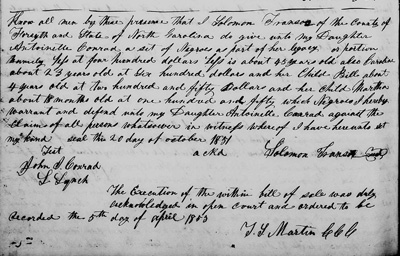 Know all men by these presence that I Solomon Transou of the County of
Forsyth and State of North Carolina do give unto my Daughter
Antoinette Conrad a set of Negroes a part of her legacy or portion
Namely, Jess at four hundred dollars Jess is about 43 years old also Caroline
about 23 years old at Six hundred dollars and her Child Bill about
4 years old at two hundred and fifty Dollars and her Child Martha
about 18 months old at one hundred and fifty, which Negroes I hereby
warrant and defend unto my Daughter Antoinette Conrad against the
Claims of all persons whatsoever in witness whereof I have here unto set
my hand seal this 20 day of october 1851
Test
Solomon Transou
John P. Conrad
L Lynch
The Execution of the within bill of sale was duly
acknowledged in open court and ordered to be
recorded the 5th day of April 1853